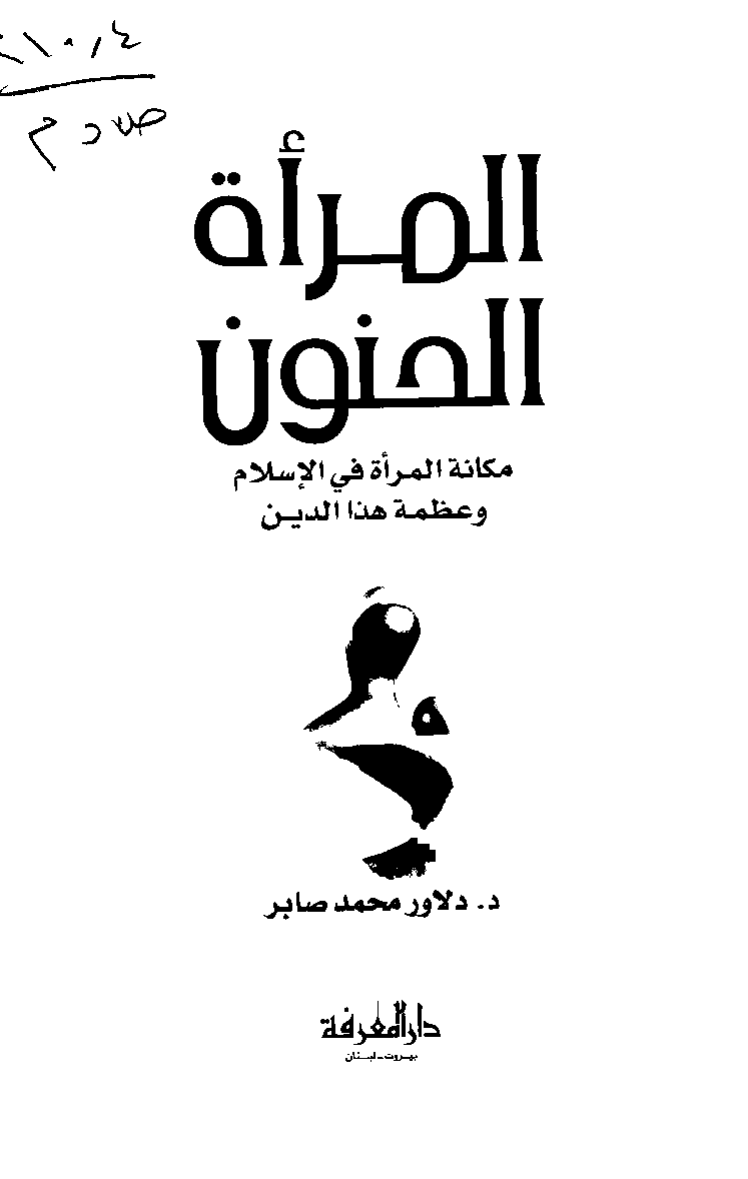 ٢١٠,٤
ص د م
المرأة
الحنون
مكانة المرأة في الإسلام
وعظمة هذا الدين
د. دلاور محمد صابر
دار المعرفة
بيروت - لبنان